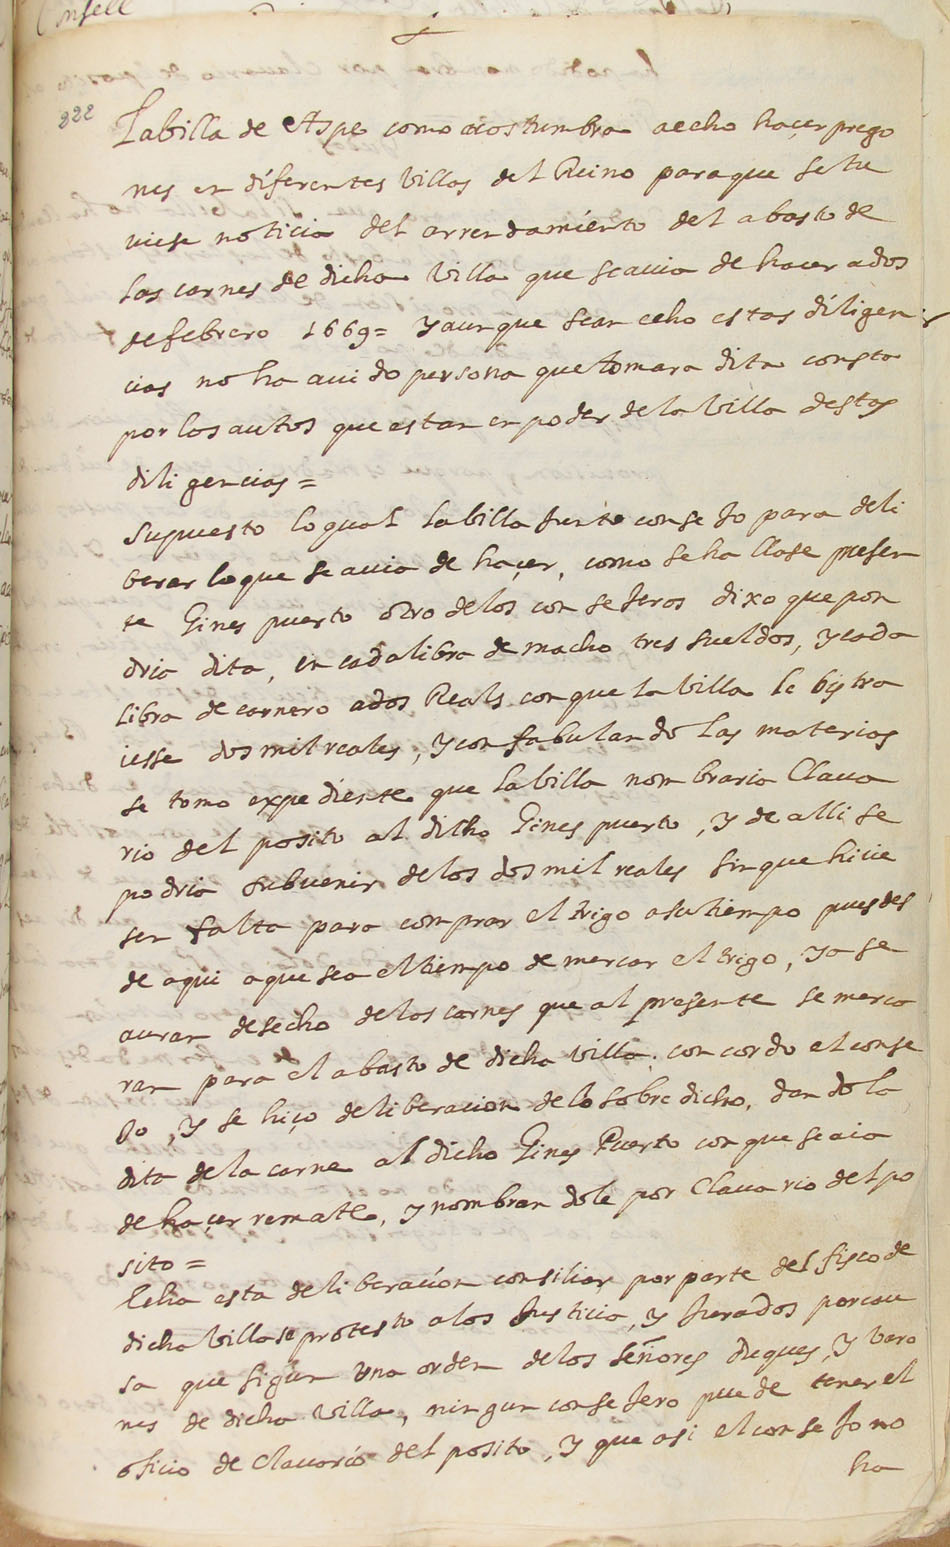 222
La billa de Aspe como acostumbra aecho haçer prego
nes en diferentes Villas del Reino para que se tu
uiese noticia del arrendamiento del abasto de
las carnes de dicha Villa que se auia de hacer a dos
de febrero 1669= y aunque sean echo estas diligen
cias no ha auido persona que tomara dita consta
por los autos que estan en poder de la Villa destas
diligencias=
Supuesto lo qual la billa junto consejo para deli
berar lo que se auia de haçer, como se hallase presen
te Gines puerto otro de los consejeros dixo que pon
dria dita, en cada libra de macho tres sueldos, y cada
libra de carnero a dos Reals con que la Villa le bistra
iesse dos mil reales, y confabulando las materias
se tomo expediente que la billa nombraria Claua
rio del posito al dicho Gines puerto, y de alli se
podria subuenir de los dos mil reales sin que hicie
sen falta para comprar el trigo a su tiempo pues des
de aqui a que sea el tiempo de mercar el trigo, ya se
auran desecho de las carnes que al presente se merca
ran para el abasto de dicha villa. concordo el conse
jo, y se hiço deliberacion de lo sobre dicho, dando la
dita de la carne al dicho Gines Puerto con que se aia
de haçer remate, y nombrandole por Clauario del po
sito=
Echa esta deliberacion consiliar por parte del fisco de
dicha billa se protesto a los Justicia, y Jurados por cau
sa que sigun una orden de los señores duques, y baro
nes de dicha Villa, ningun consejero puede tener el
oficio de Clauario del posito, y que asi el consejo no
ha